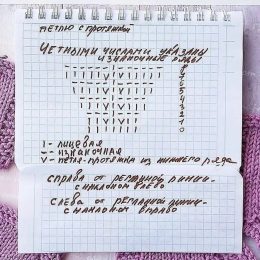 петлю с протяжкой
Четными числами указаны
изнаночные ряды
7
6
5
4
3
2
1
0
| - лицевая
– - изнаночная
V - петля-протяжка из нижнего ряда
справа от регланной линии -
с наклоном влево
слева от регланной линии -
с наклоном вправо